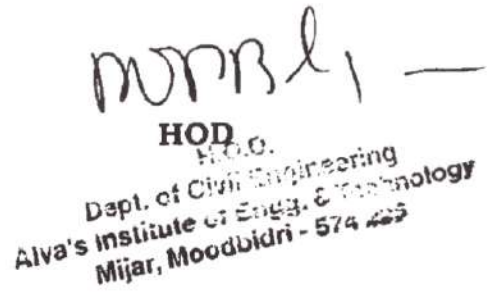 HOD
H.O.D.
Dept. of Civil Engineering
Alva's Institute of Engg. & Technology
Mijar, Moodbidri - 574